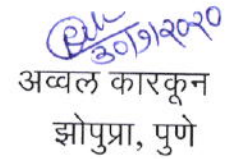 30/9/2020
अव्वल कारकून
झोपुप्रा, पुणे